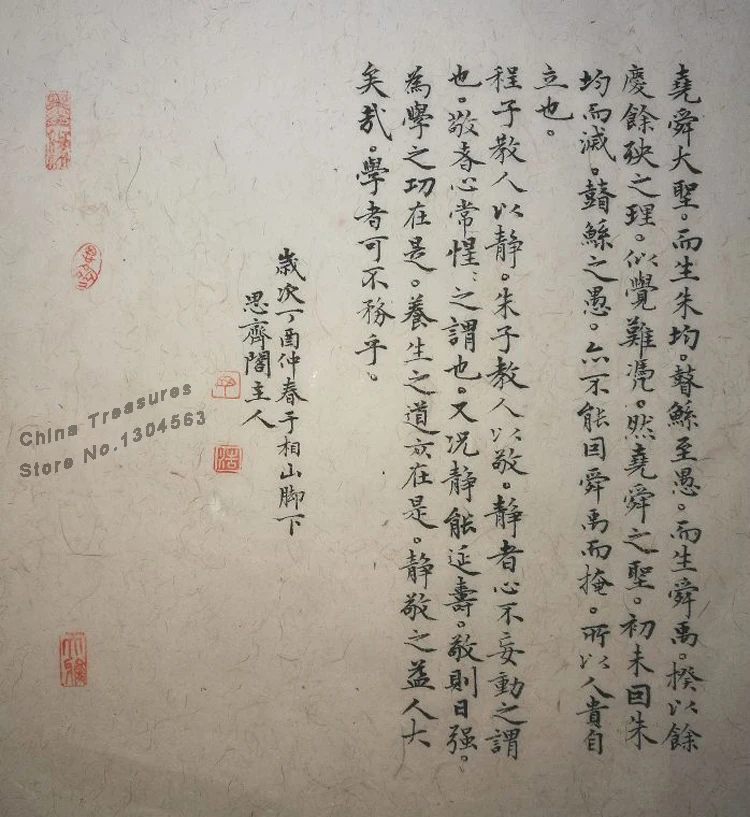 堯舜大聖。而生朱均。瞽鯀至愚。而生舜禹。揆以餘
慶餘殃之理。似覺難凴。然堯舜之聖。初未囙朱
均而滅。瞽鯀之愚。亦不能囙舜禹而掩。所以人貴自
立也。
程子教人以静。朱子教人以敬。静者心不妄動之謂
也。敬者心常惺〻之謂也。又况静能延壽。敬則日强。
為學之功在是。養生之道亦在是。静敬之益人大
矣哉。學者可不務乎。
歲次丁酉仲春于相山脚下
思齊閣主人
China Treasures
Store No.1304563